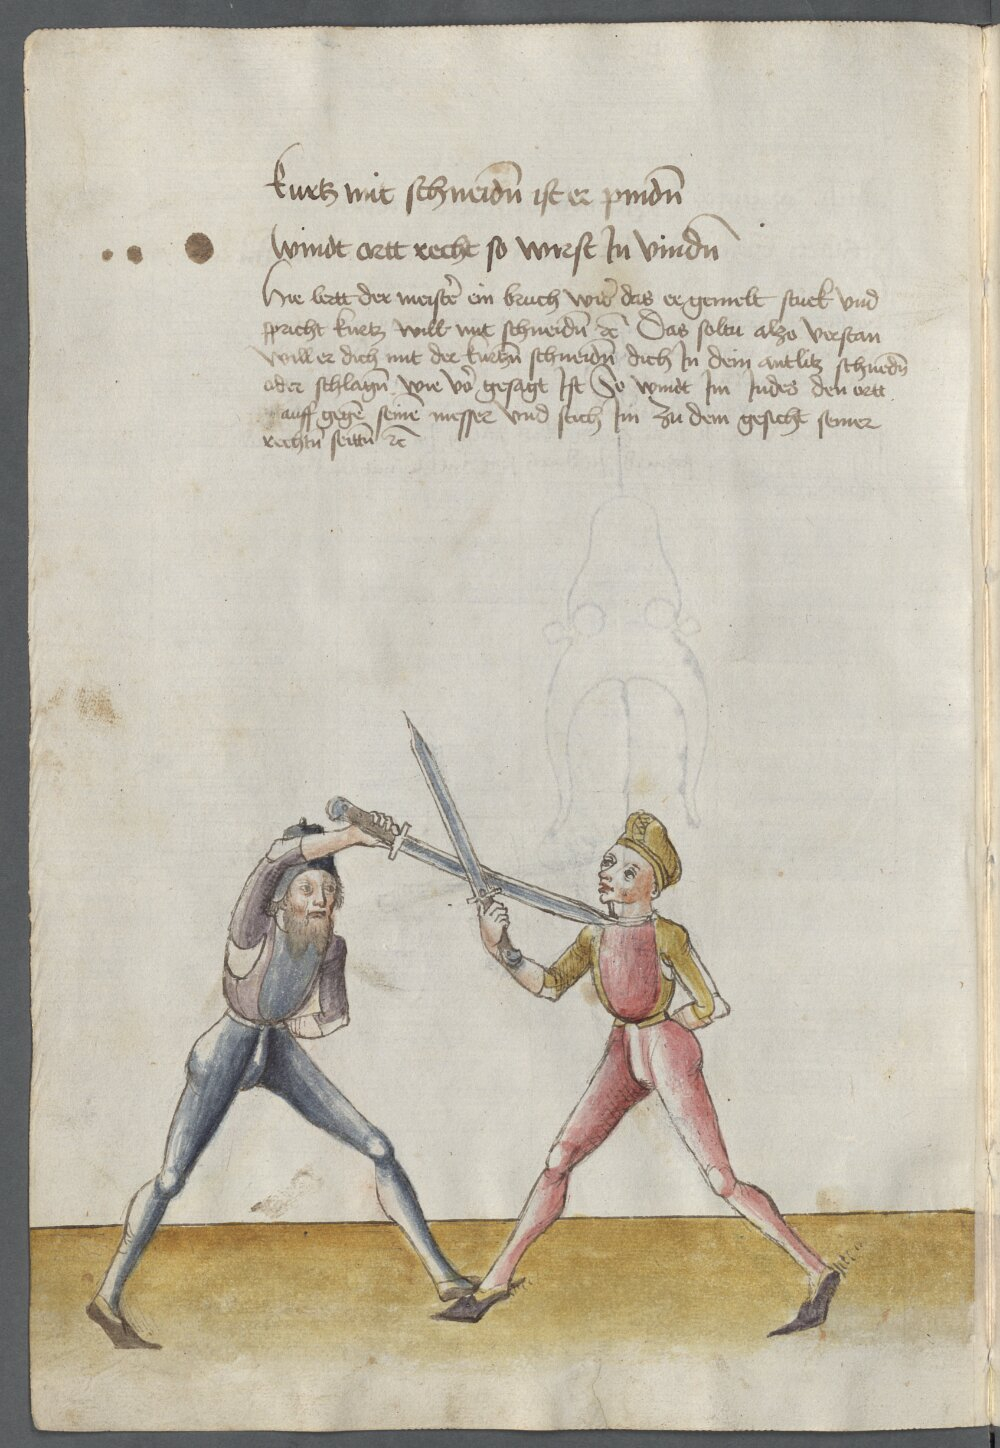 kurtz mit schneidn̄ ist er pindn̄
Windt ortt recht so wirst In vindn̄
Hie lertt der meister̄ ein bruch wider̄ das er gemelt stuck vnd
spricht kurtz will mit schneidn̄ ꝛc̄ Das soltu alzo verstan
Will er dich mit der kurtzn̄ schneidn̄ dich In dein antlitz schneidn̄
oder schlagn̄ wie vor̄ gesagt Ist So windt Im Indes den ortt
auff gegn̄ seinē messer vnd stich Im zu dem gesicht seiner
rechtn̄ seittn̄ ꝛc̄